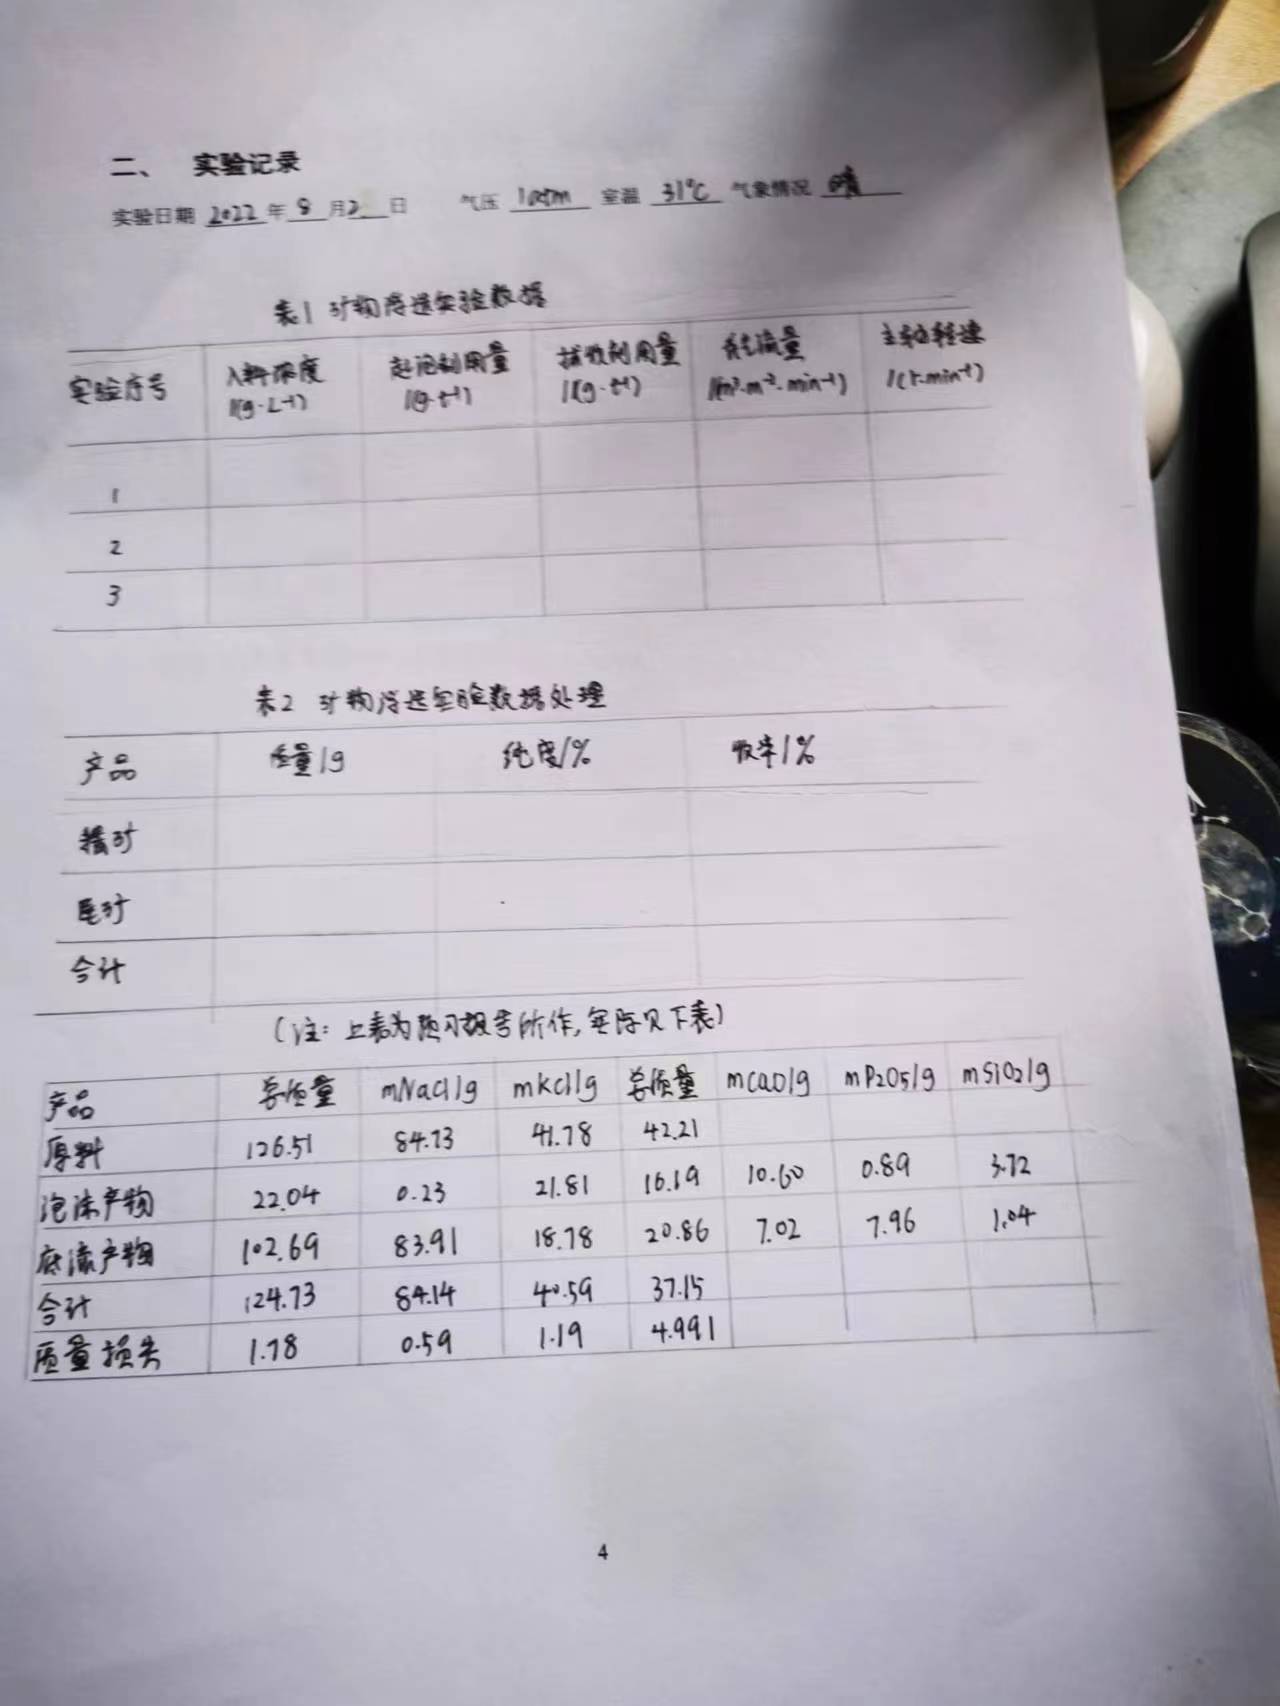 二、 实验记录
实验日期 2022 年 8 月 2 日 气压 1atm 室温 31℃ 气象情况 晴
表1 矿物浮选实验数据
实验序号 入料浓度/(g·L⁻¹) 起泡剂用量/(g·t⁻¹) 捕收剂用量/(g·t⁻¹) 充气流量/(m³·m⁻²·min⁻¹) 主轴转速/(r·min⁻¹)
1
2
3
表2 矿物浮选实验数据处理
产品 质量/g 纯度/% 收率/%
精矿
尾矿
合计
(注: 上表为预习报告所作, 实际见下表)
产品 总质量 mNaCl/g mKCl/g 总质量 mCaO/g mP2O5/g mSiO2/g
原料 126.51 84.73 41.78 42.21
泡沫产物 22.04 0.23 21.81 16.19 10.60 0.89 3.72
底流产物 102.69 83.91 18.78 20.86 7.02 7.96 1.04
合计 124.73 84.14 40.59 37.15
质量损失 1.78 0.59 1.19 4.991
4